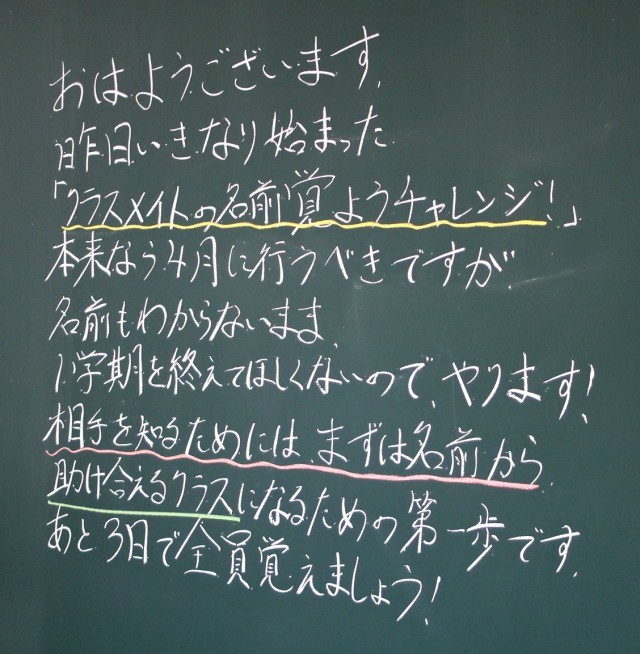 おはようございます。
昨日いきなり始まった
「クラスメイトの名前覚ようチャレンジ!」
本来なら4月に行うべきですが、
名前もわからないまま、
1学期を終えてほしくないので、やります!
相手を知るためには、まずは名前から
助け合えるクラスになるための第一歩です。
あと3日で全員覚えましょう!